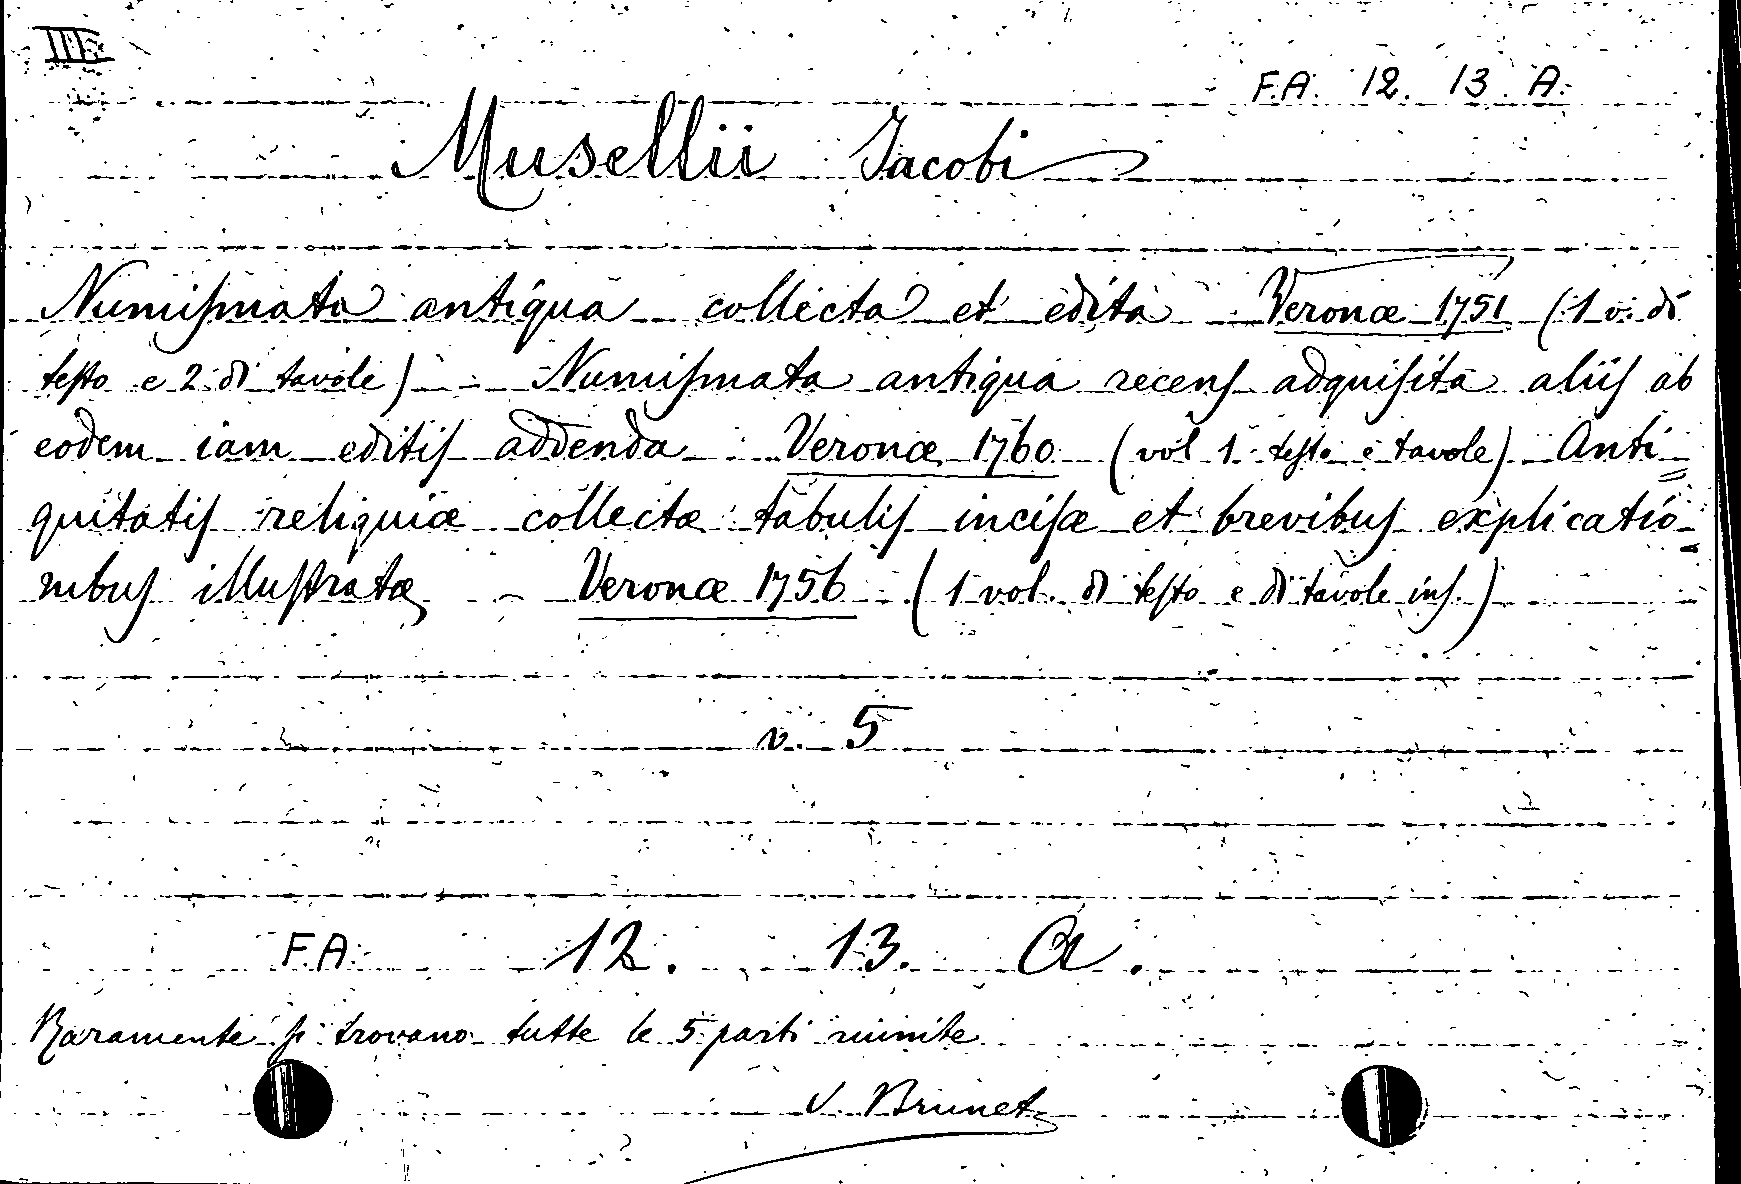 III
F.A. 12. 13. A.
Musellii Jacobi
Numismata antiqua collecta et edita Veronæ 1751 (1 v. di
testo e 2 di tavole) - Numismata antiqua recens adquisita aliis ab
eodem iam editis addenda - Veronæ 1760 (vol 1 testo e tavole) Anti=
quitatis reliquiæ collectæ tabulis incisæ et brevibus explicatio=
nibus illustratæ - Veronæ 1756 (1 vol. di testo e di tavole ins.)
v. 5
F.A. 12. 13. A.
Raramente si trovano tutte le 5 parti riunite
V. Brunet